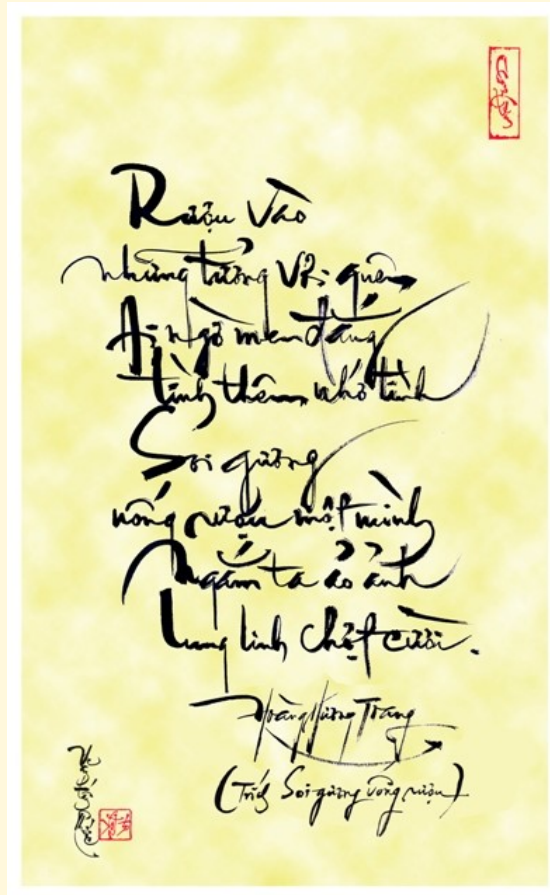 Rượu vào
những tưởng với quên
Ai ngờ men đắng
tình thêm nhớ tình
Soi gương
uống rượu một mình
Ngắm ta ảo ảnh
Lung linh chợt cười.
Hoàng Hương Trang
(Trích Soi gương uống rượu)